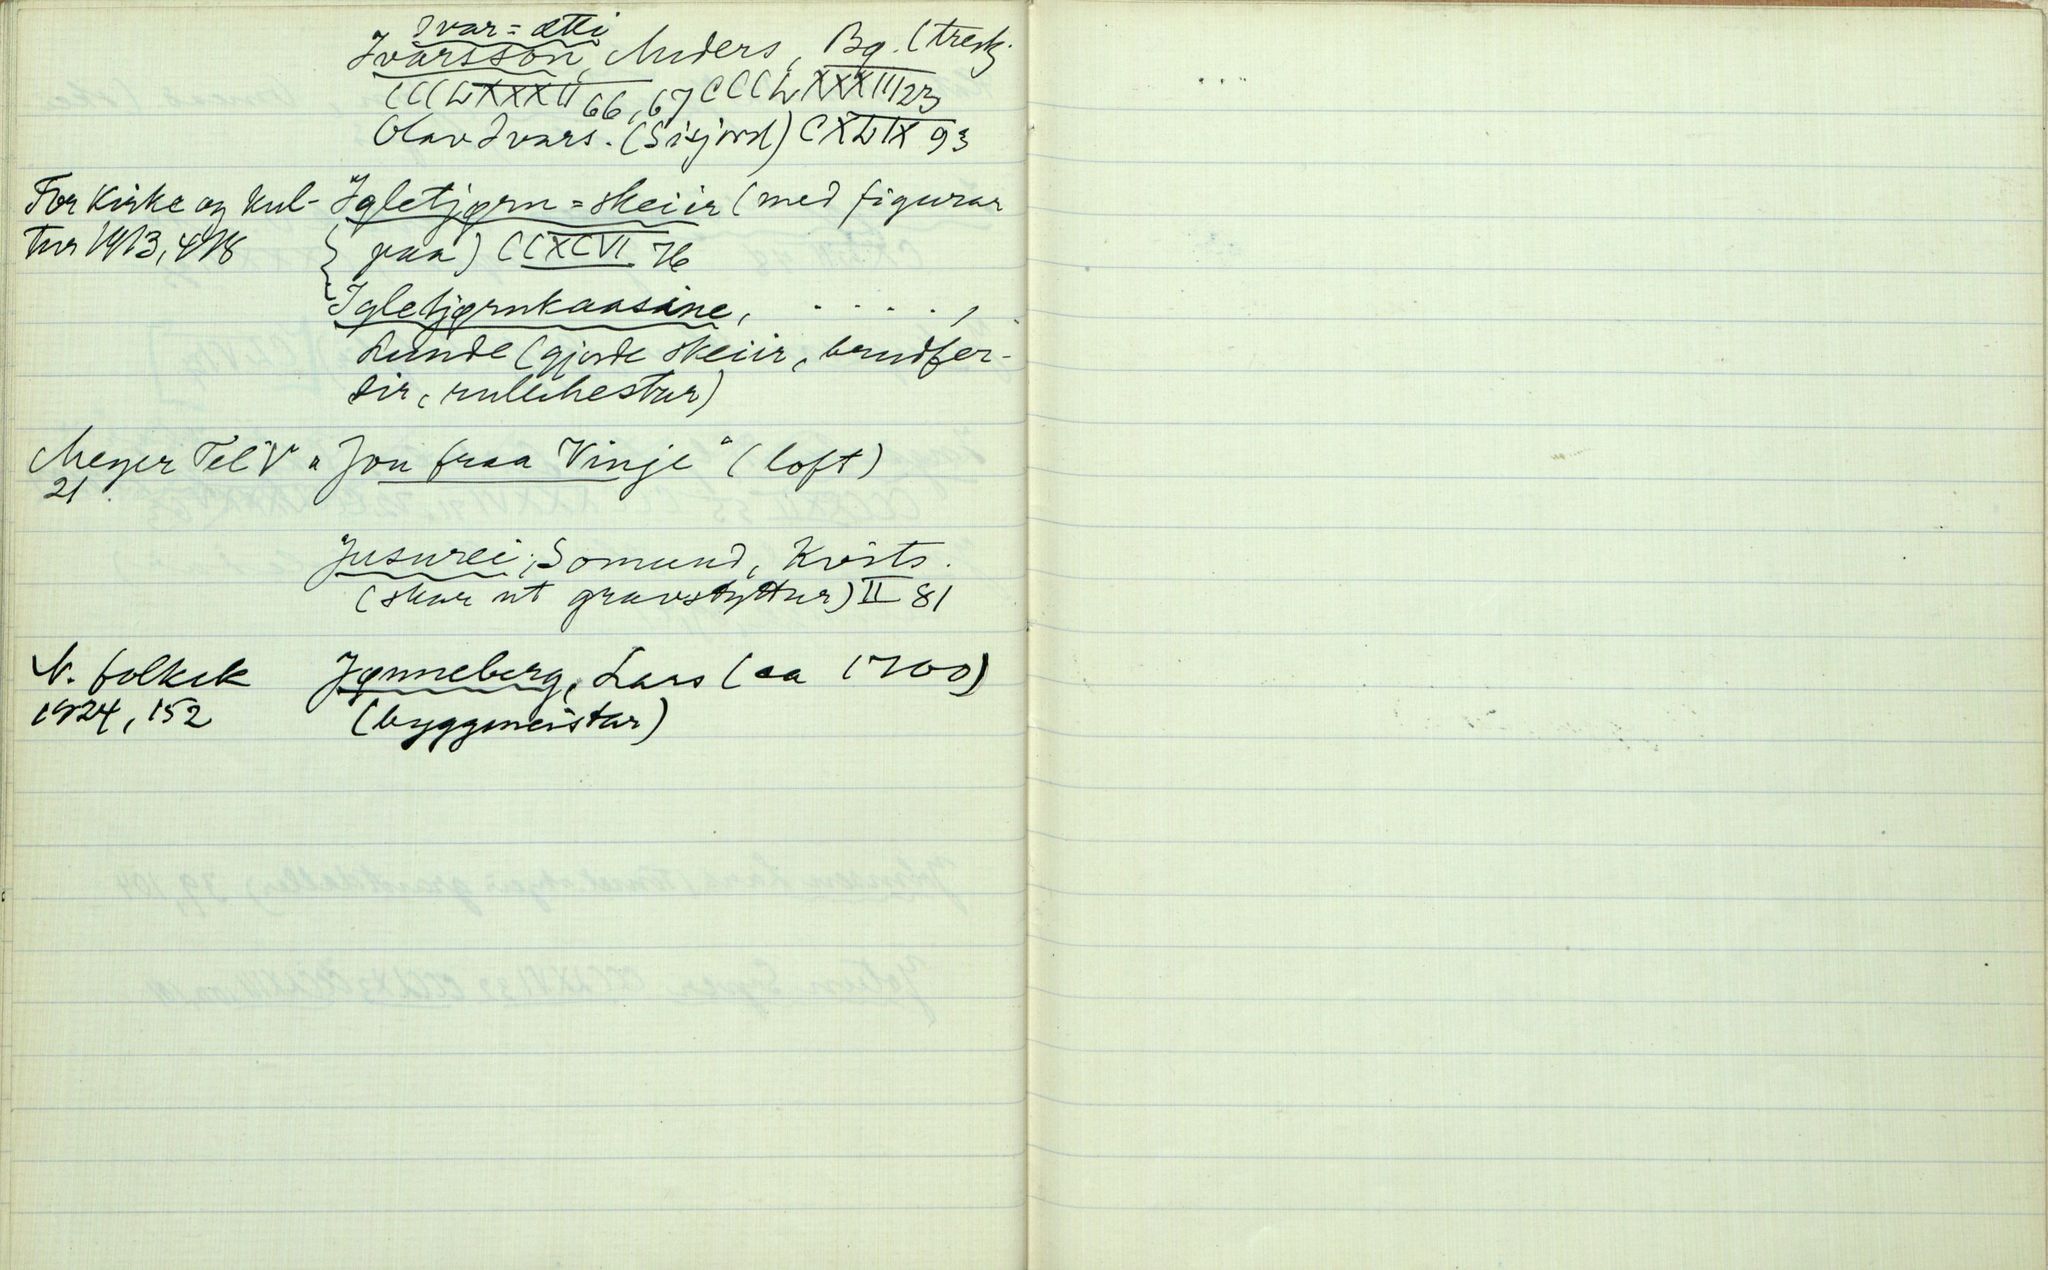 Ivar=ætti
Ivarsson, Anders, Bg. (tresk.
CCCLXXXII 66, 67 CCCLXXXIII 23
Olav Ivars. (Sisjord) CXLIX 93
For Kirke og Kul- Igletjørn=skeiir (med figurar
tur 1913, 418 paa) CCXCVI 76
Igletjørnkaasine, . . . . ,
Lunde (gjorde skeiir, brudfer-
dir, rullehestar)
Meyer Tel V "Jon fraa Vinje" (loft)
21.
Jusurei, Somund, Kvits.
(skar ut gravstyttur) II 81
N. folkek Jønneberg, Lars (ca 1700)
1924, 152 (byggmeistar)